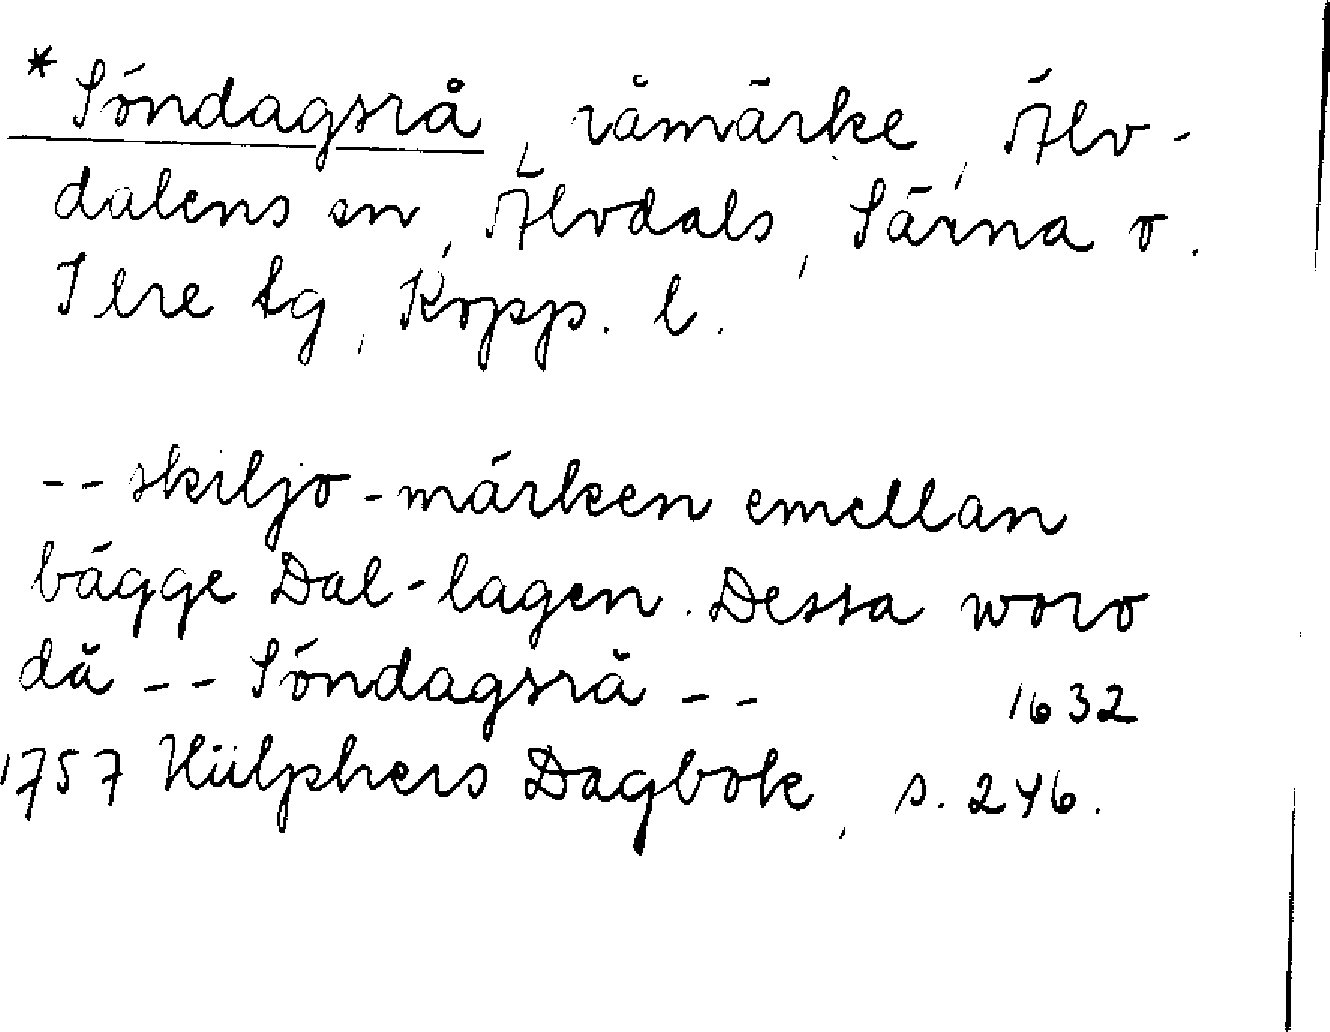 *Söndagsrå, råmärke, Älv-
dalens sn, Älvdals, Särna o.
Idre tg, Kopp. l.
-- skiljo-märken emellan
bägge Dal-lagen. Dessa woro
då -- Söndagsrå -- 1632
1757 Hülphers Dagbok, s. 246.